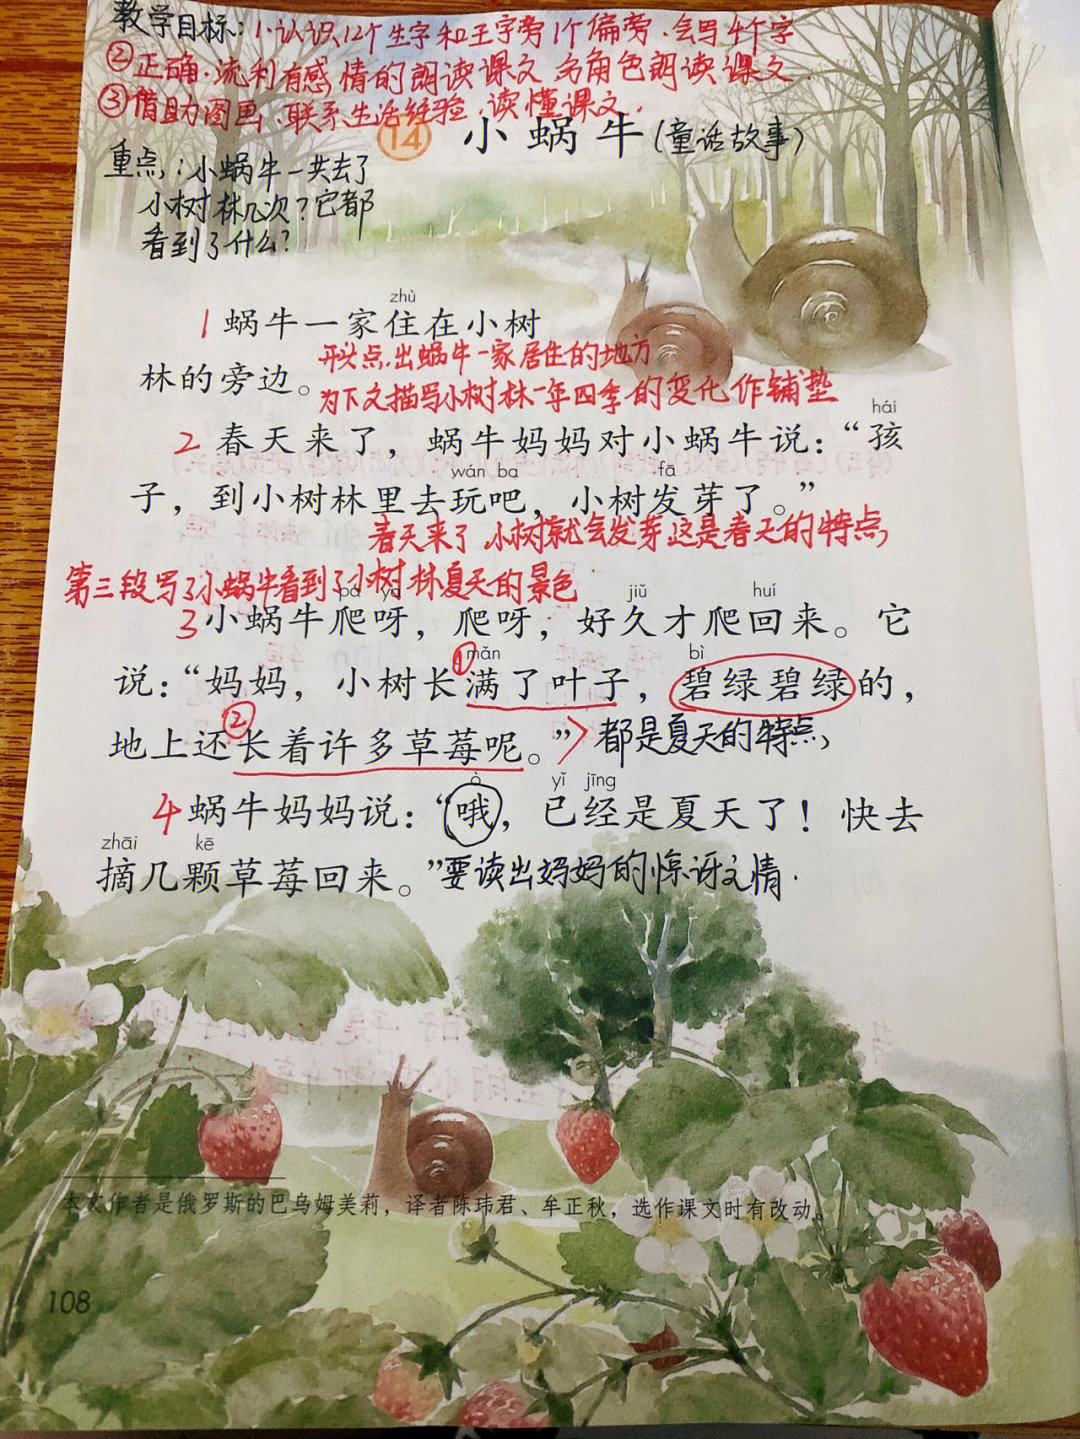 教学目标：1.认识12个生字和王字旁1个偏旁.会写4个字
②正确.流利有感情的朗读课文 分角色朗读课文.
③借助图画.联系生活经验.读懂课文.
14 小蜗牛(童话故事)
重点：小蜗牛一共去了
小树林几次？它都
看到了什么？
zhù
1 蜗牛一家住在小树
开头点出蜗牛一家居住的地方
林的旁边。
为下文描写小树林一年四季的变化作铺垫
hái
2 春天来了，蜗牛妈妈对小蜗牛说：“孩
wán ba fā
子，到小树林里去玩吧，小树发芽了。”
春天来了.小树就会发芽这是春天的特点
第三段写了小蜗牛看到了小树林夏天的景色
pá yā jiǔ huí
3 小蜗牛爬呀，爬呀，好久才爬回来。它
① mǎn bì
说：“妈妈，小树长满了叶子，碧绿碧绿的，
②
地上还长着许多草莓呢。”都是夏天的特点
ò yǐ jīng
4 蜗牛妈妈说：“哦，已经是夏天了！快去
zhāi kē
摘几颗草莓回来。”要读出妈妈的惊讶之情.
本文作者是俄罗斯的巴乌姆美莉，译者陈玮君、牟正秋，选作课文时有改动。
108